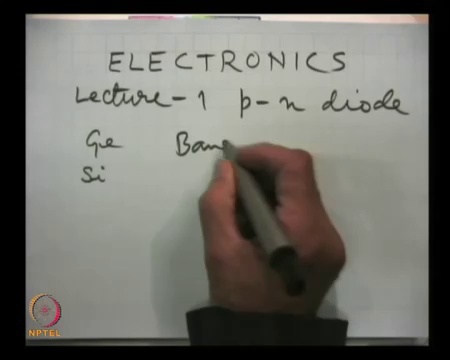 ELECTRONICS
Lecture-1 p-n diode
Ge Ban
Si
NPTEL